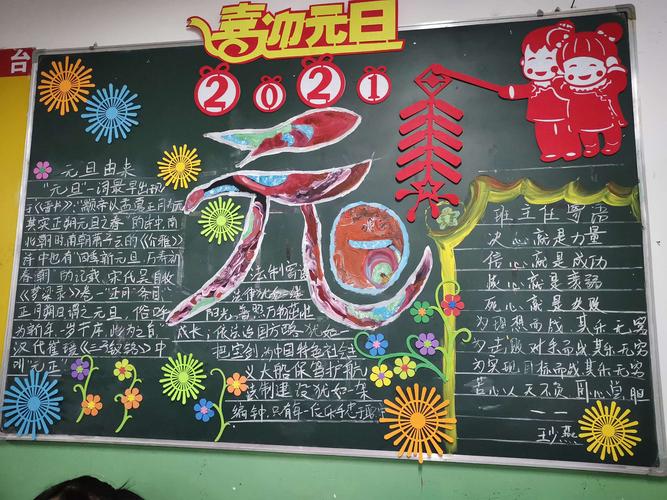 台
喜迎元旦
2021
元旦
元旦由来
"元旦"一词最早出现
于《晋书》:"颛帝以孟夏正月为元
其实正朝元旦之春"的诗中,南
北朝时,南朝萧子云的《介雅》
诗中也有"四季新元旦,万寿初
春朝"的记载。宋代吴自牧
《梦梁录》卷一"正月"条目:
正月朔日谓之元旦,俗呼
为新年。一岁节序,此为之首"
汉代崔瑗《三子钗铭》中
叫"元正"
法制
法律犹如一缕
阳光,普照万物茁壮
成长;依法治国方略,犹如一
把宝剑,为中国特色社会
义大船保驾护航;
法制建设犹如一架
编钟,只有每一位乐手
班主任寄语
决心就是力量
信心就是成功
疑心就是
死心就是失败
为理想而战其乐无穷
为击败对手而战其乐无穷
为实现目标而战其乐无穷
苦心人天不负
——